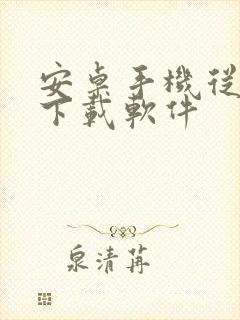 安桌手機從
下載軟件
泉清苒